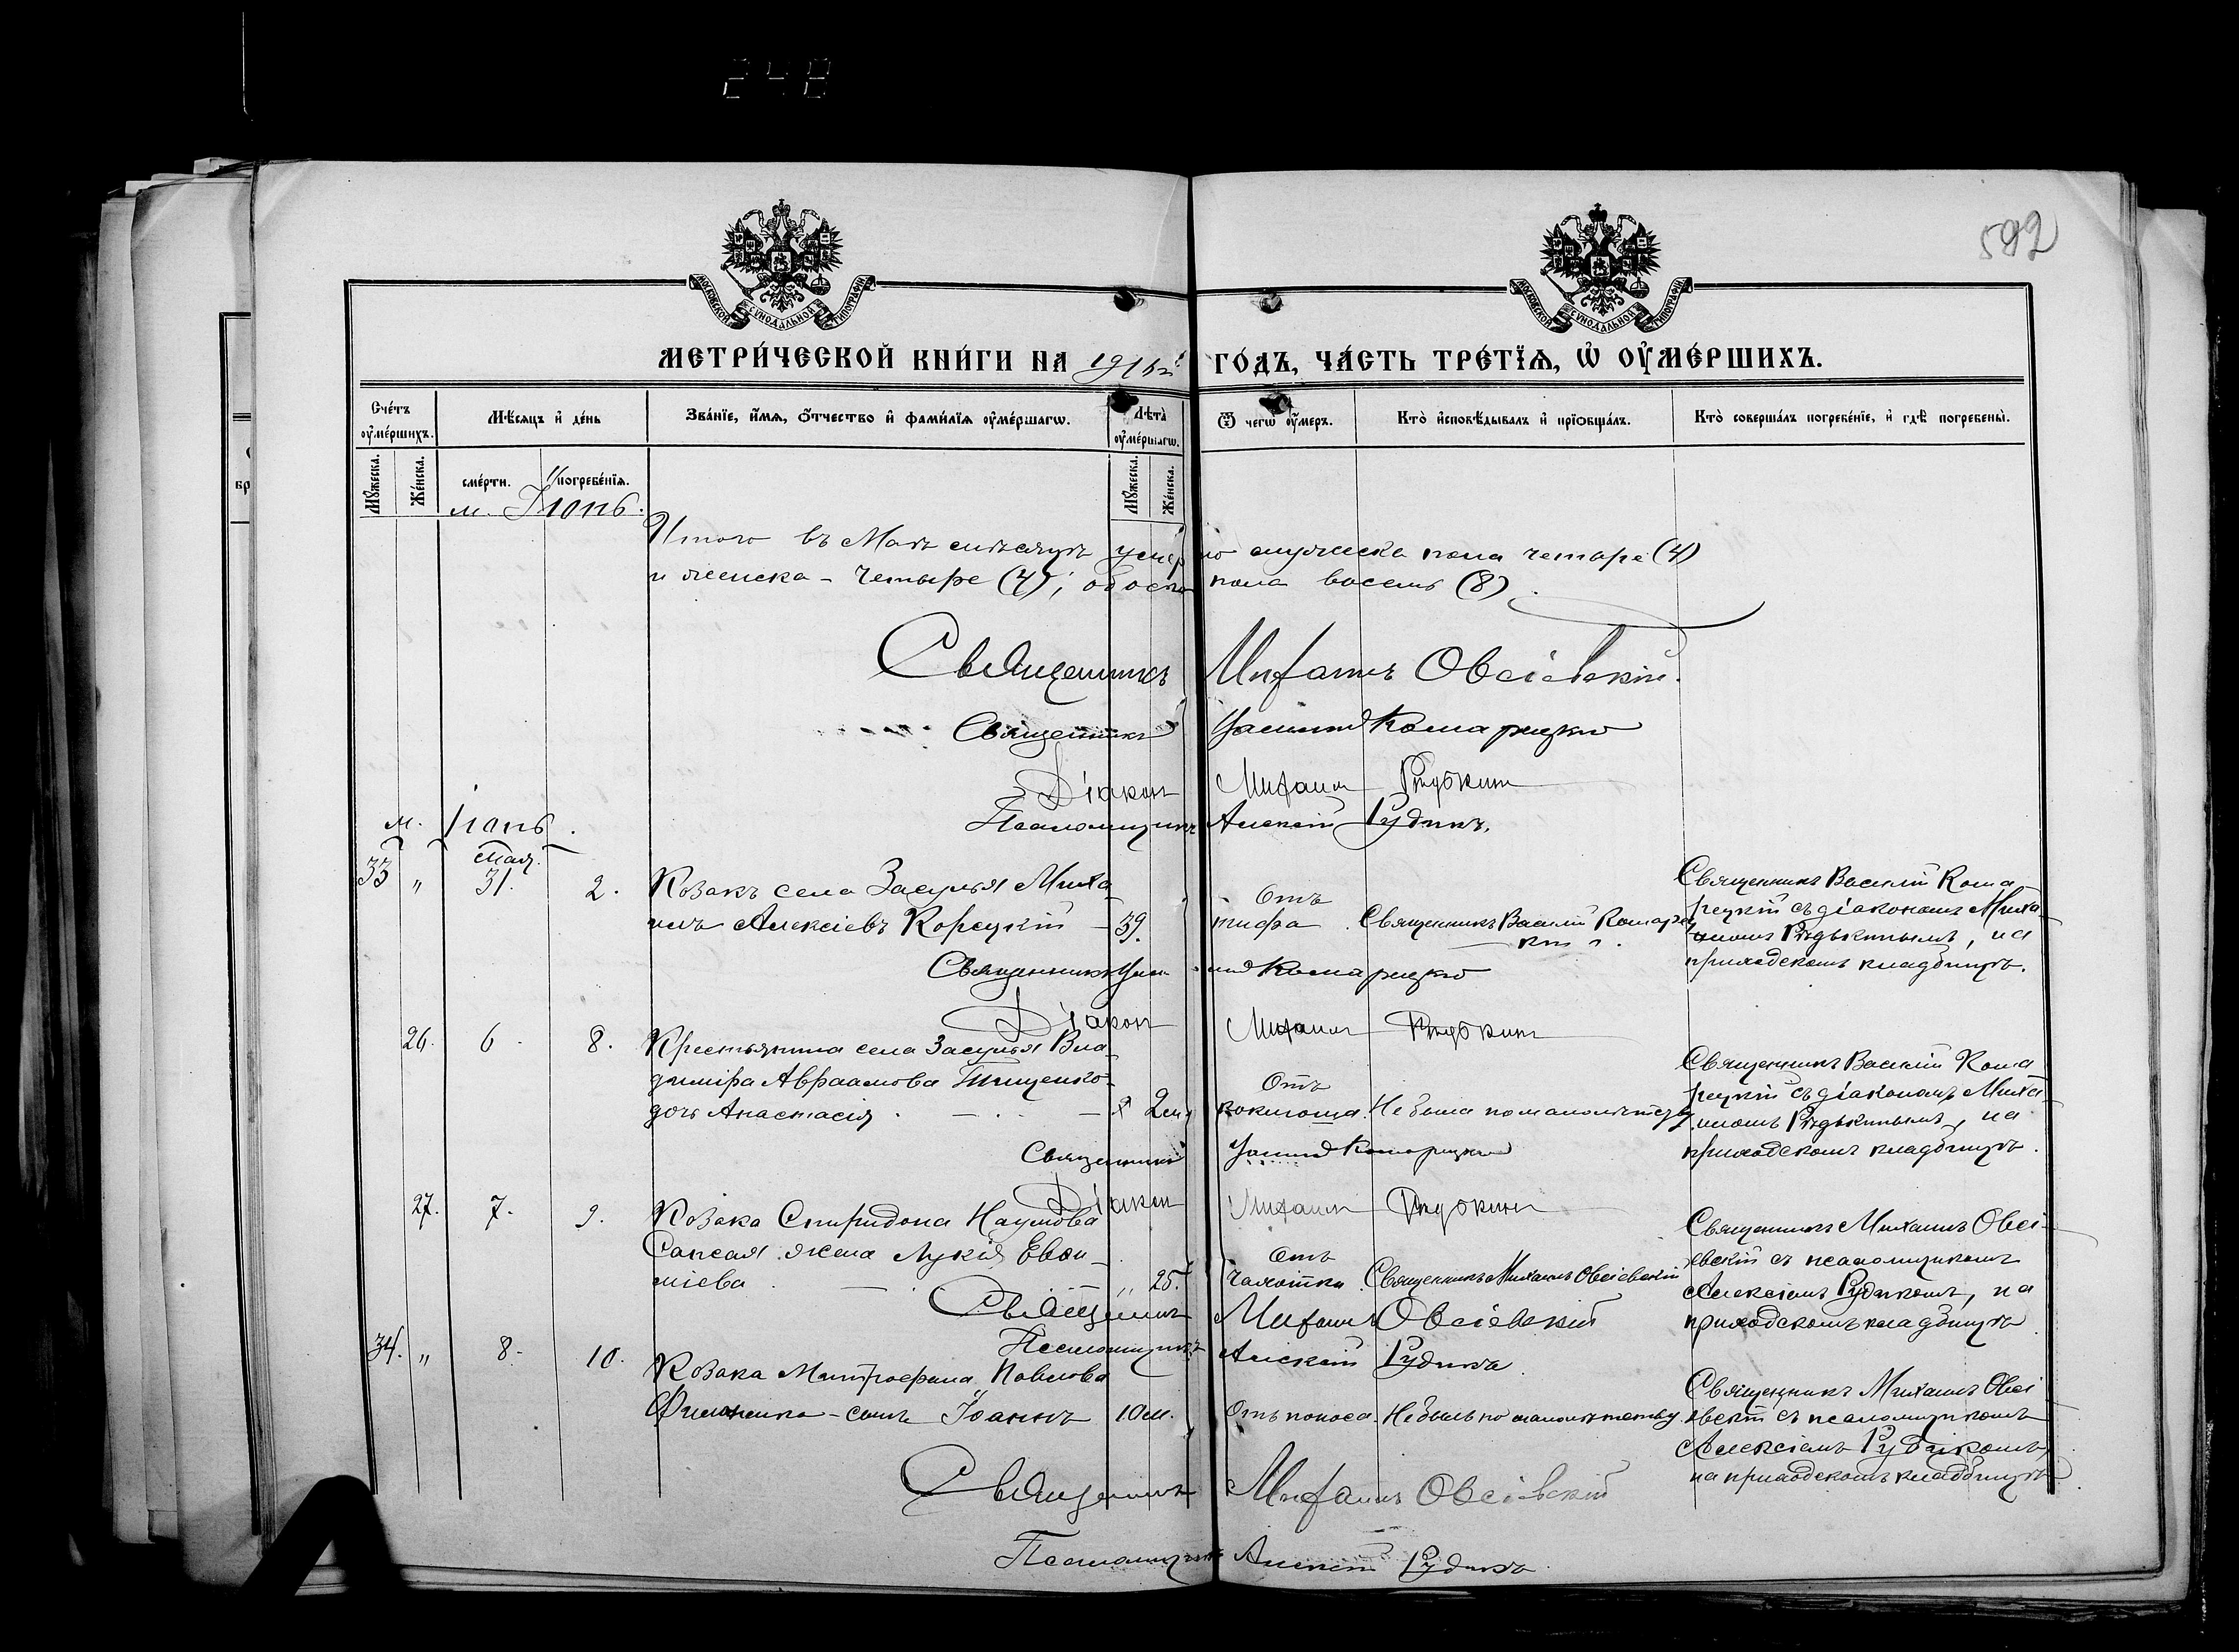 248
592
МОСКОВСКОЙ СѴНОДАЛЬНОЙ ТИПОГРАФІИ
МОСКОВСКОЙ СѴНОДАЛЬНОЙ ТИПОГРАФІИ
МЕТРИ́ЧЕСКОЙ КНИ́ГИ НА 1916й ГО́ДЪ, ЧА́СТЬ ТРЕ́ТІѦ, Ѡ ОУМЕ́РШИХЪ.
Счетъ оумершихъ. Мѣсяцъ и день Званіе, имя, отчество и фамилія оумершагѡ. Лѣта оумершагѡ. Ѿ чегѡ оумеръ. Кто исповѣдывалъ и пріобщалъ. Кто совершалъ погребеніе, и гдѣ погребены.
Мужеска. Женска. смерти. погребенія. Мужеска. Женска.
м. Іюнь.
Итого въ Маѣ мѣсяцѣ умерло мужеска пола четыре (4)
и женска - четыре (4); обоего пола восемь (8)
Священникъ Михаилъ Овсіевскій.
Священникъ Василій Комарецкій
Діаконъ Михаилъ Рѣдькинъ
Псаломщикъ Алексій Рудикъ.
м. Іюнь.
33 " Мая 31. 2. Козакъ села Засулья Миха-
илъ Алексіевъ Корецкій — 39.
Отъ
тифа. Священникъ Василій Комарец-
кій.
Священникъ Василій Кома-
рецкій съ діакономъ Миха-
иломъ Рѣдькинымъ, на
приходскомъ кладбищѣ.
Священникъ Василій Комарецкій
Діаконъ Михаилъ Рѣдькинъ
26. 6. 8. Крестьянина села Засулья Вла-
диміра Авраамова Тищенко-
дочь Анастасія. — 2 м.
Отъ
коклюша. Не была по малолѣтству
Священникъ Василій Кома
рецкій съ діакономъ Миха-
иломъ Рѣдькинымъ, на
приходскомъ кладбищѣ.
Священникъ Василій Комарецкій
Діаконъ Михаилъ Рѣдькинъ
27. 7. 9. Козака Спиридона Наумова
жена Лукія Евѳи-
міева. — " 25.
Отъ
чахотки. Священникъ Михаилъ Овсіевскій
Священникъ Михаилъ Овсі-
евскій съ псаломщикомъ
Алексіемъ Рудикомъ, на
приходскомъ кладбищѣ
Священникъ Михаилъ Овсіевскій
Псаломщикъ Алексій Рудикъ
34. " 8. 10. Козака Митрофана Павлова
сынъ Іоаннъ 10 м.
Отъ поноса. Не былъ по малолѣтству.
Священникъ Михаилъ Овсі
евскій съ псаломщикомъ
Алексіемъ Рудикомъ,
на приходскомъ кладбищѣ
Священникъ Михаилъ Овсіевскій
Псаломщикъ Алексій Рудикъ